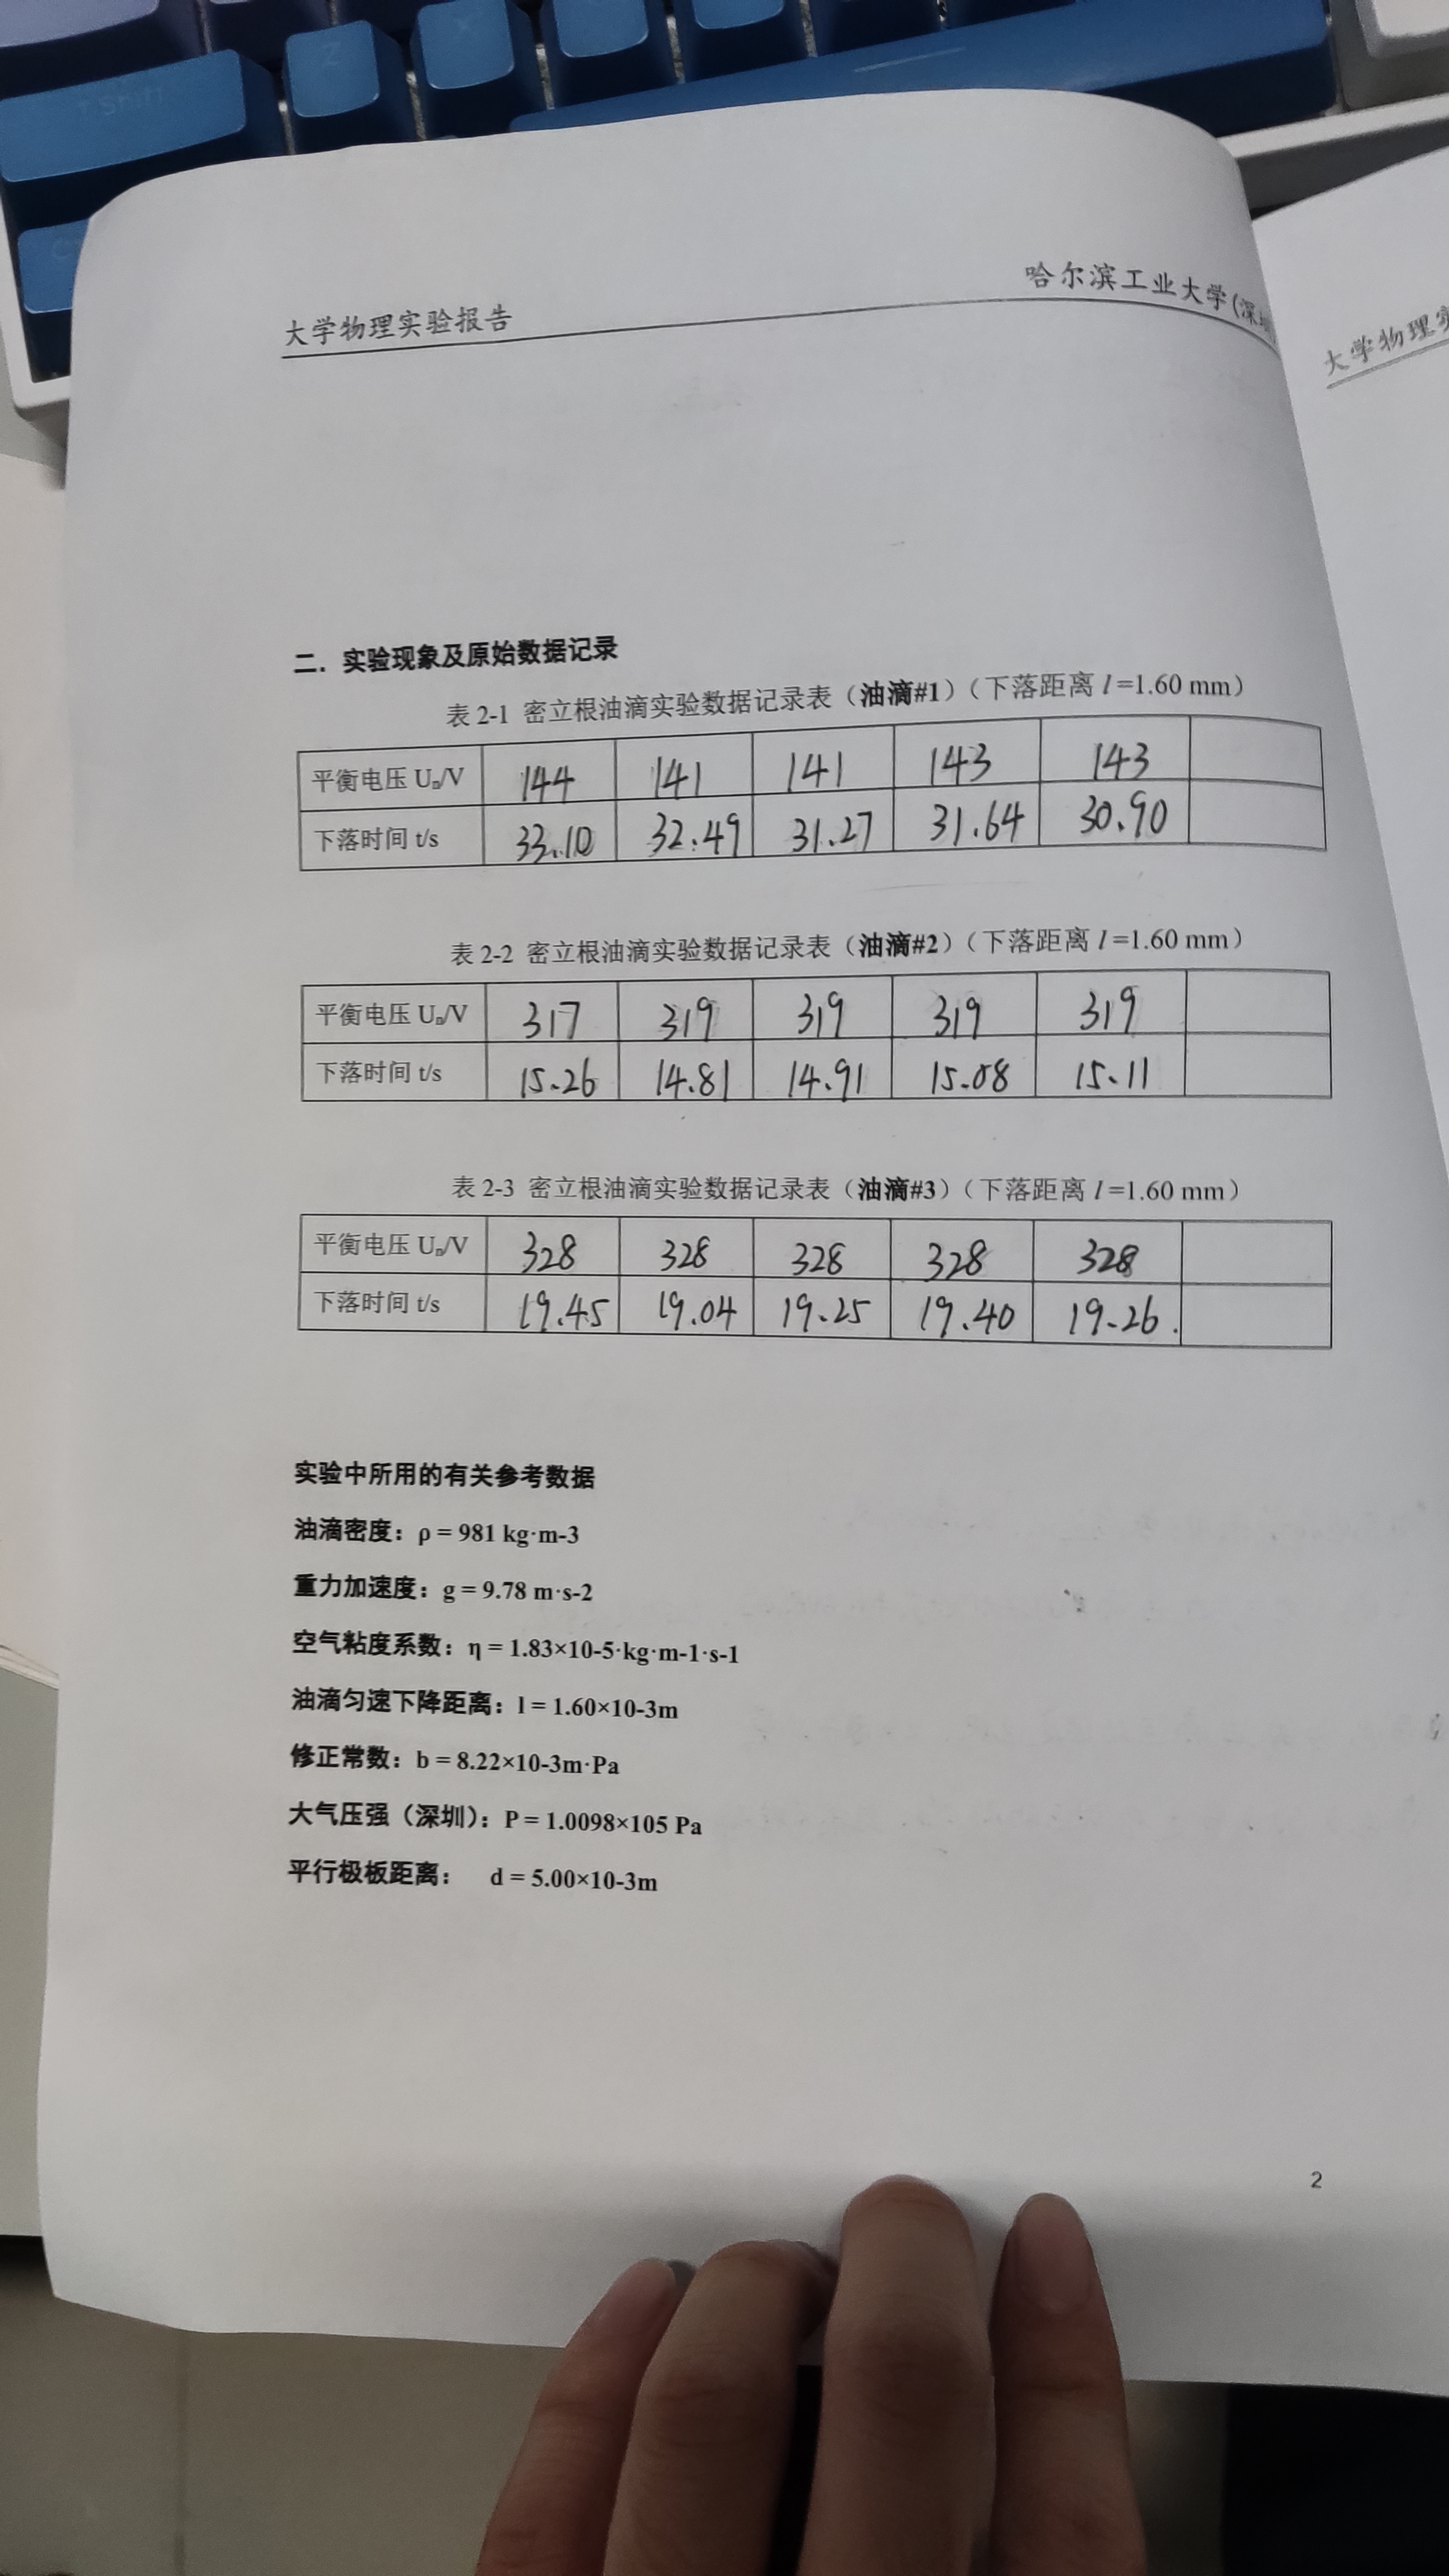 Shift
Z
X
大学物理实验报告
哈尔滨工业大学(深
大学物理实
二．实验现象及原始数据记录
表 2-1 密立根油滴实验数据记录表（油滴#1）（下落距离 l =1.60 mm）
平衡电压 Uₙ/V 144 141 141 143 143
下落时间 t/s 33.10 32.49 31.27 31.64 30.90
表 2-2 密立根油滴实验数据记录表（油滴#2）（下落距离 l =1.60 mm）
平衡电压 Uₙ/V 317 319 319 319 319
下落时间 t/s 15.26 14.81 14.91 15.08 15.11
表 2-3 密立根油滴实验数据记录表（油滴#3）（下落距离 l =1.60 mm）
平衡电压 Uₙ/V 328 328 328 328 328
下落时间 t/s 19.45 19.04 19.25 19.40 19.26.
实验中所用的有关参考数据
油滴密度：ρ = 981 kg·m-3
重力加速度：g = 9.78 m·s-2
空气粘度系数：η = 1.83×10-5·kg·m-1·s-1
油滴匀速下降距离：l = 1.60×10-3m
修正常数：b = 8.22×10-3m·Pa
大气压强（深圳）：P = 1.0098×105 Pa
平行极板距离： d = 5.00×10-3m
2